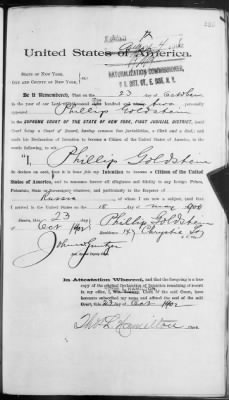 United States of America.
STATE OF NEW YORK,
CITY AND COUNTY OF NEW YORK,
NATURALIZATION COMMISSIONER,
Be it Remembered, That on the 23 day of October
in the year of our Lord personally
appeared Phillip Goldstein
in the SUPREME COURT OF THE STATE OF NEW YORK, FIRST JUDICIAL DISTRICT, said
Court being a Court of Record, having common law jurisdiction, a Clerk and a Seal; and
made his Declaration of Intention to become a Citizen of the United States of America, in the
words following, to wit:
"I, Phillip Goldstein
do declare on oath, that it is bona fide my Intention to become a Citizen of the United
States of America, and to renounce forever all allegiance and fidelity to any foreign Prince,
Potentate, State or Sovereignty whatever, and particularly to the Emperor of
Russia of whom I am now a subject, and that
I arrived in the United States on the 18 day of May
Sworn, this 23 day Phillip Goldstein
of Oct 1902 Residence 187 Chrystie
In Attestation Whereof, and that the foregoing is a true
copy of the original Declaration of Intention remaining of record
in my office, I, Clerk of the said Court, have
hereunto subscribed my name and affixed the seal of the said
Court, this 23 day of Oct 1902
Thos L Hamilton Clerk